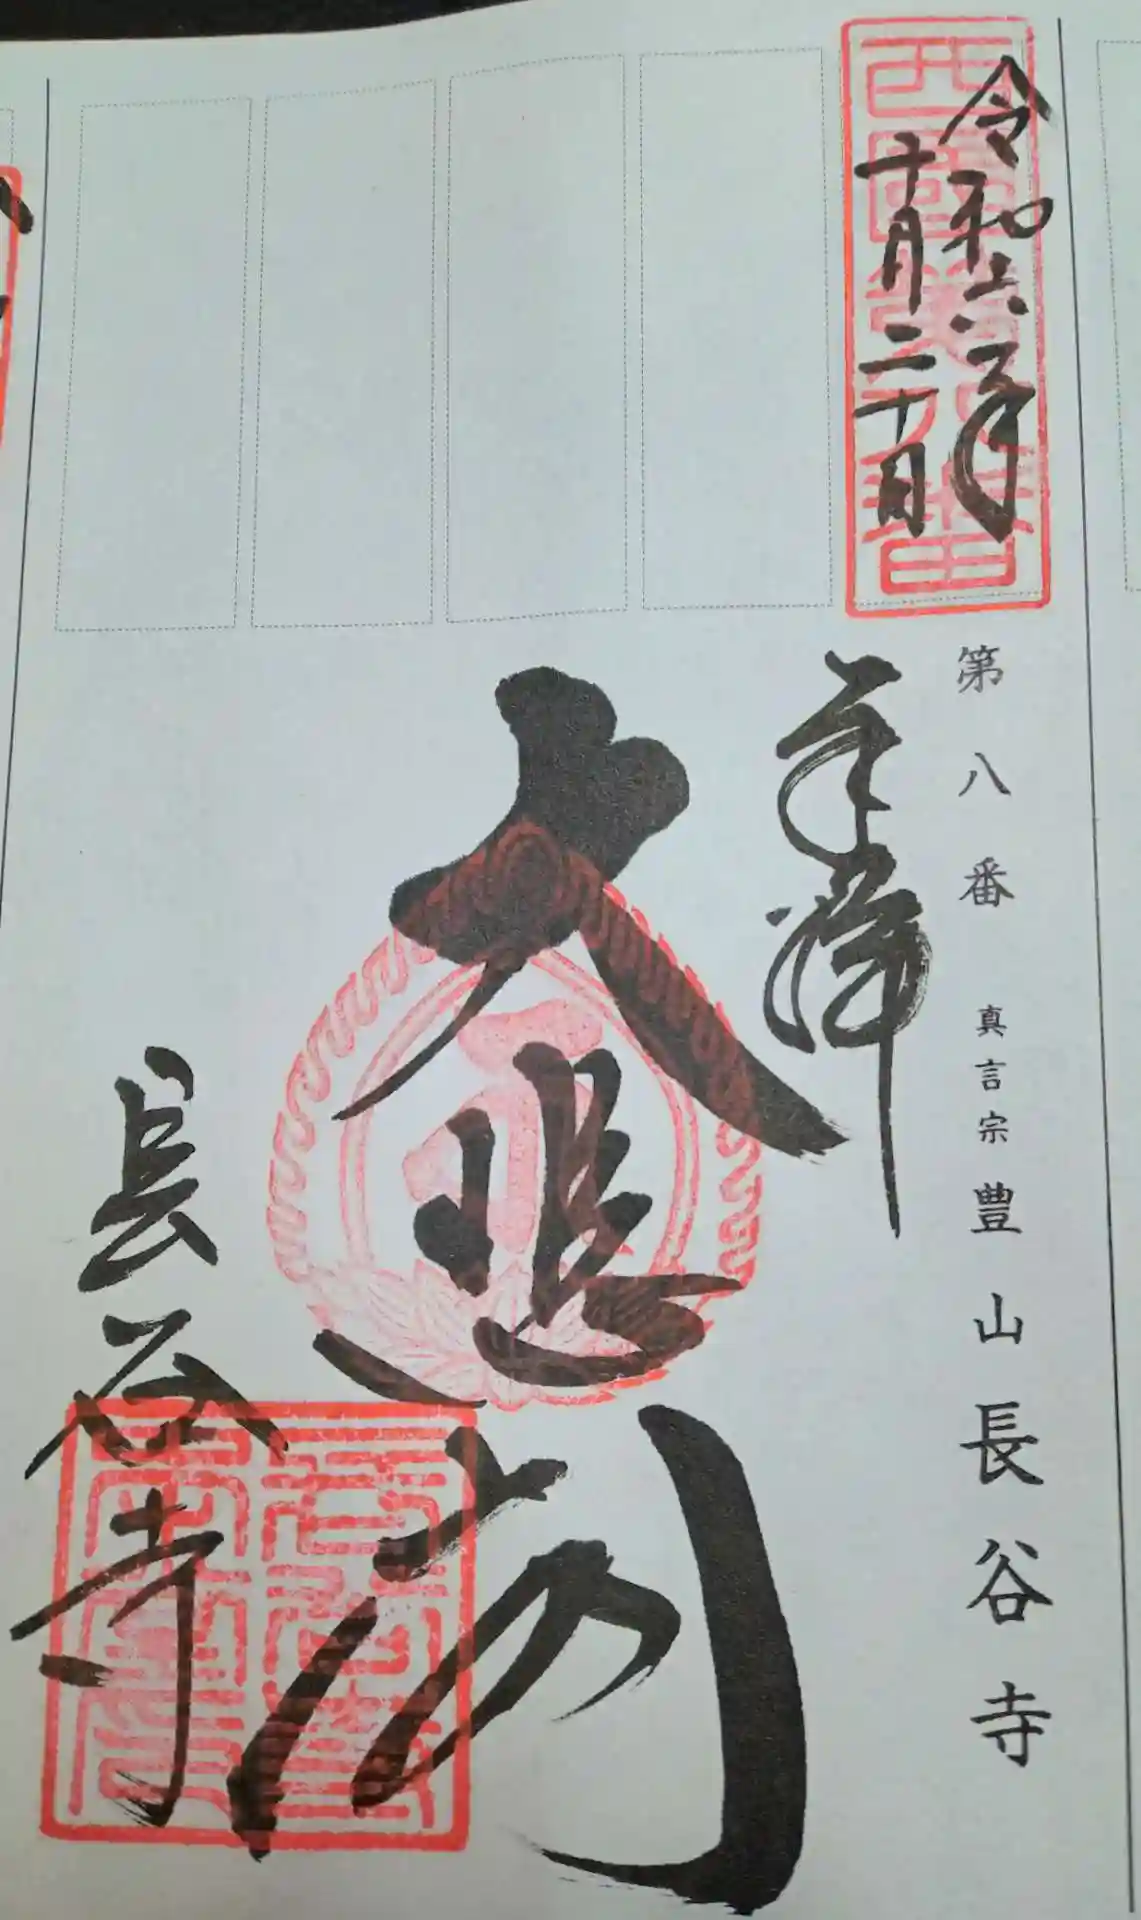 令和六年
十月二十日
第八番 真言宗豊山長谷寺
奉拝
大悲閣
長谷寺